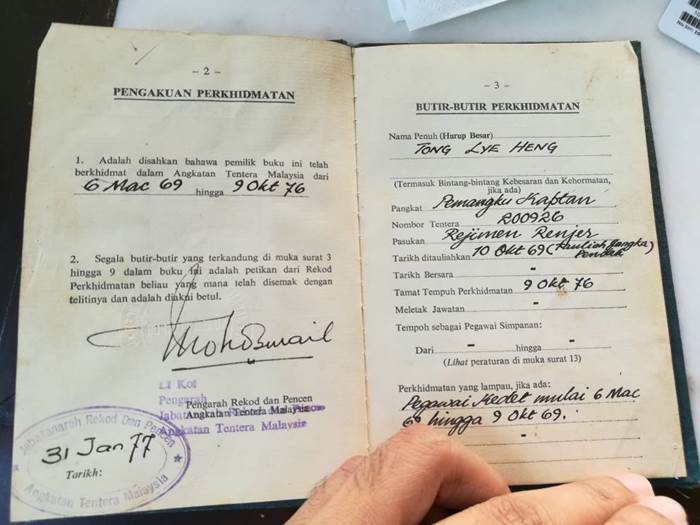 – 2 –
PENGAKUAN PERKHIDMATAN
1. Adalah disahkan bahawa pemilik buku ini telah
berkhidmat dalam Angkatan Tentera Malaysia dari
6 Mac 69 hingga 9 Okt 76
2. Segala butir-butir yang terkandung di muka surat 3
hingga 9 dalam buku ini adalah petikan dari Rekod
Perkhidmatan beliau yang mana telah disemak dengan
telitinya dan adalah diakui betul.
Lt Kol
Pengarah
Pengarah Rekod dan Pencen
Angkatan Tentera Malaysia
Angkatan Tentera Malaysia
Jabatanarah Rekod Dan Pencen
31 Jan 77
Tarikh:
Angkatan Tentera Malaysia
– 3 –
BUTIR-BUTIR PERKHIDMATAN
Nama Penuh (Hurup Besar)
TONG LYE HENG
(Termasuk Bintang-bintang Kebesaran dan Kehormatan,
jika ada)
Pangkat Pemangku Kaptan
Nombor Tentera 200926
Pasukan Rejimen Renjer
Tarikh ditauliahkan 10 Okt 69 (Tauliah Jangka
Pendek)
Tarikh Bersara -
Tamat Tempuh Perkhidmatan 9 Okt 76
Meletak Jawatan -
Tempoh sebagai Pegawai Simpanan:
Dari - hingga -
(Lihat peraturan di muka surat 13)
Perkhidmatan yang lampau, jika ada:
Pegawai Kedet mulai 6 Mac
69 hingga 9 Okt 69.
-